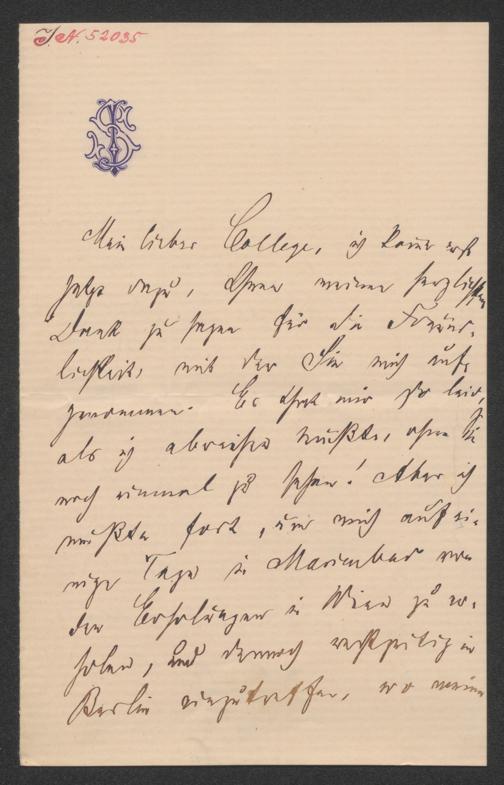 J.N. 52035
Mein lieber College, ich komme erst
jetzt dazu, Ihnen meinen herzlichsten
Dank zu sagen für die Freund-
lichkeit, mit der Sie mich auf-
genommen. Es that mir so leid,
als ich abreisen mußte, ohne Sie
noch einmal zu sehen! Aber ich
mußte fort, um mich auf ei-
nige Tage in Marienbad von
den Erholungen in Wien zu er-
holen, und dennoch rechtzeitig in
Berlin einzutreffen, wo meine